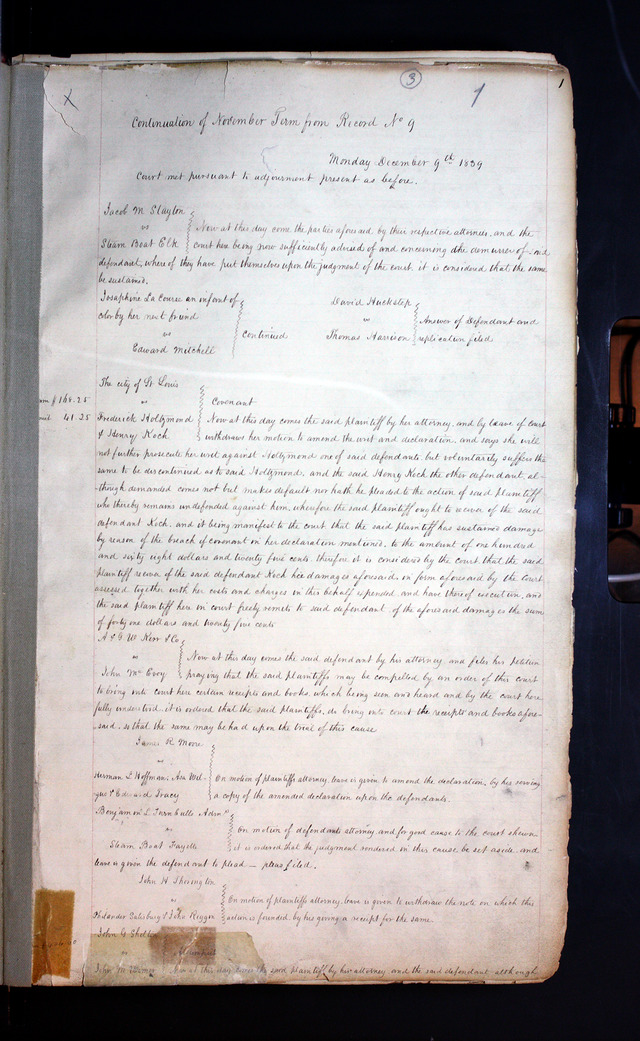 X
3
1
1
Continuation of November Term from Record No 9
Monday December 9th 1839
Court met pursuant to adjournment present as before.
Jacob M Slayton
vs
Steam Boat Elk
Now at this day come the parties aforesaid by their respective attorneys, and the
court here being now sufficiently advised of and concerning the demurrer of said
defendant, where of they have put themselves upon the judgment of the court, it is considered that the same
be sustained.
Josephine La Course an infant of
color by her next friend
vs
Edward Mitchell
Continued
David Huckstep
vs
Thomas Harrison
Answer of Defendant and
replication filed
The city of St Louis
vs
Frederick Holtzmond
& Henry Koch
$168.25
41.25
Covenant
Now at this day comes the said plaintiff by her attorney, and by leave of court
withdraw her motion to amend the writ and declaration, and says she will
not further prosecute her writ against Holtzmond one of said defendants but voluntarily suffers the
same to be discontinued as to said Holtzmond, and the said Henry Koch the other defendant, al-
though demanded comes not but makes default nor hath he pleaded to the action of said plaintiff
who thereby remains undefended against him, wherefore the said plaintiff ought to recover of the said
defendant Koch, and it being manifest to the court that the said plaintiff has sustained damage
by reason of the breach of covenant in her declaration mentioned, to the amount of one hundred
and sixty eight dollars and twenty five cents, therefore it is considered by the court that the said
plaintiff recover of the said defendant Koch her damages aforesaid in form aforesaid by the Court
assessed together with her costs and charges in this behalf expended, and have thereof execution, and
the said plaintiff here in court freely remits to said defendant of the aforesaid damages the sum
of forty one dollars and twenty five cents
A & G W Kerr & Co
vs
John Mc Evoy
Now at this day comes the said defendant by his attorney, and files his petition
praying that the said plaintiffs may be compelled by an order of this court
to bring into court here certain receipts and books, which being seen and heard and by the court here
fully understood, it is ordered that the said plaintiffs, do bring into court the receipts and books afore-
said, so that the same may be had upon the trial of this cause
James R Moore
vs
Herman L Hoffman, Asa Wil-
gus & Edward Tracy
On motion of plaintiffs attorney, leave is given to amend the declaration, by his serving
a copy of the amended declaration upon the defendants.
Benjamin L Turnbulls Admr
vs
Steam Boat Fayette
On motion of defendants attorney, and for good cause to the court shewn
it is ordered that the judgment rendered in this cause be set aside, and
leave is given the defendant to plead — pleas filed.
John H Thorington
vs
Philander Salisbury & John Riggin
On motion of plaintiffs attorney, leave is given to withdraw the note on which this
action is founded, by his giving a receipt for the same.
John G
vs
John M
Now at this day comes the said plaintiff by his attorney and the said defendant although